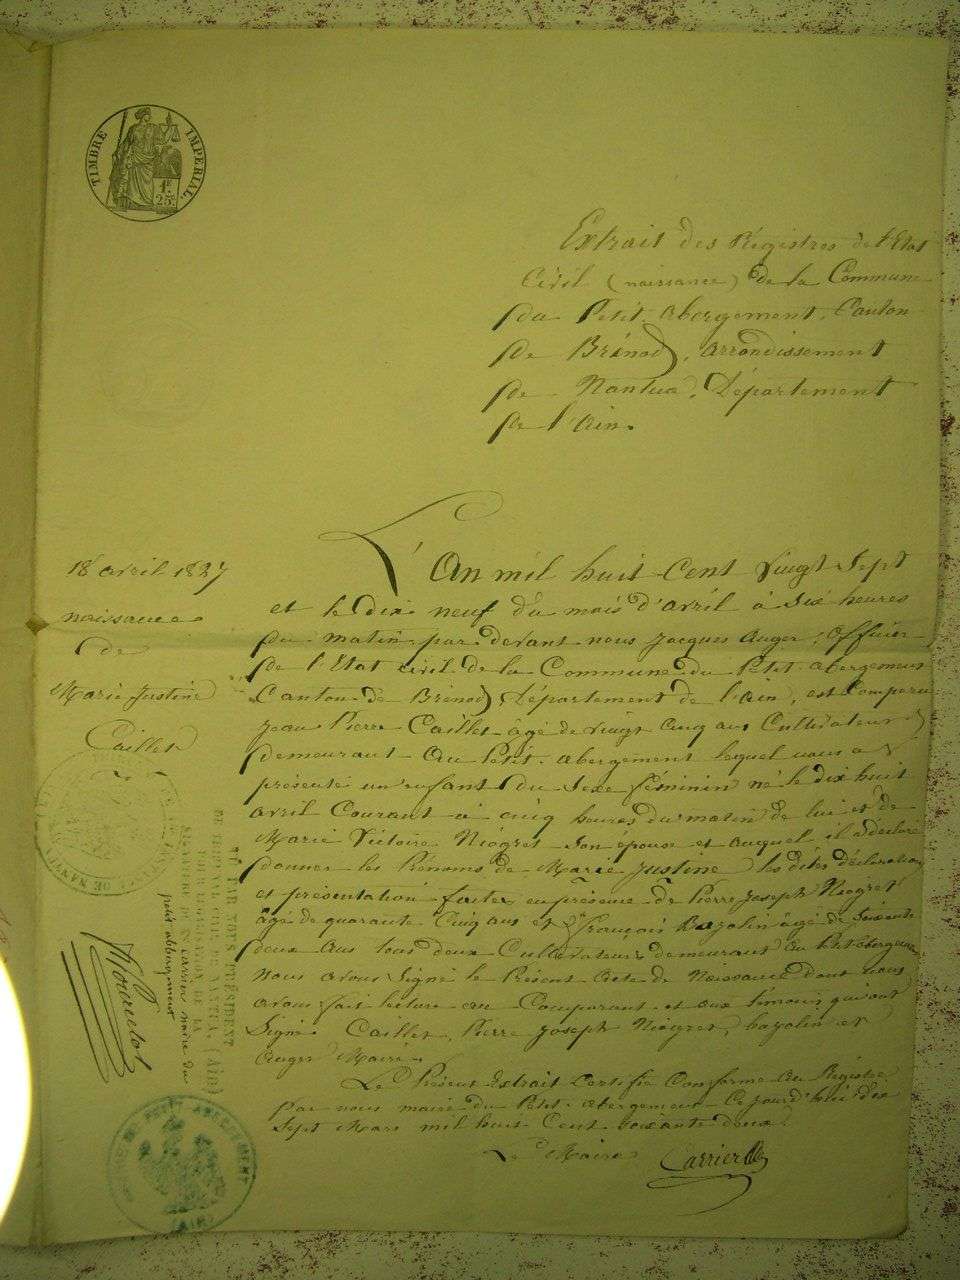 TIMBRE IMPERIAL
1F. 25c.
Extrait des Régistres de l'Etat
Civil (naissance) de la Commune
du Petit-abergement, Canton
de Brénod, arrondissement
de Nantua, Département
de l'ain.
18 avril 1827
naissance
de
Marie Justine
Caillet
L'An mil huit cent vingt sept
et le dix neuf du mois d'avril à six heures
du matin par devant nous Jacques Auger, officier
de l'Etat civil de la Commune du Petit-abergement
Canton de Brénod, Département de l'ain, est comparu
Jean Pierre Caillet âgé de vingt cinq ans Cultivateur
demeurant au Petit-abergement lequel nous a
présenté un enfant du sexe féminin né le dix huit
avril courant à cinq heures du matin de lui et de
Marie Victoire Niogret son épouse et auquel il a déclaré
donner les Prénoms de Marie Justine les dites déclaration
et présentation faites en présence de Pierre Joseph Niogret
âgé de quarante cinq ans et de François Bazolin âgé de soixante
deux ans tous deux Cultivateurs demeurant au Petit abergement
nous avons signé le Présent acte de Naissance dont nous
avons fait lecture au Comparant et aux témoins qui ont
Signé. Caillet, Pierre Joseph Niogret, bazolin et
Auger Maire.
Le Présent Extrait certifié Conforme au Régistre
Par nous maire du Petit-abergement ce jourd'hui dix
Sept Mars mil huit Cent soixante deux.
Le Maire Carrier
VU PAR NOUS PRÉSIDENT
DU TRIBUNAL CIVIL DE NANTUA, (AIN)
POUR LÉGALISATION DE LA
SIGNATURE DE Mr Carrier maire du
petit abbergement
DE NANTUA
MAIRIE DU PETIT ABERGEMENT
(AIN)